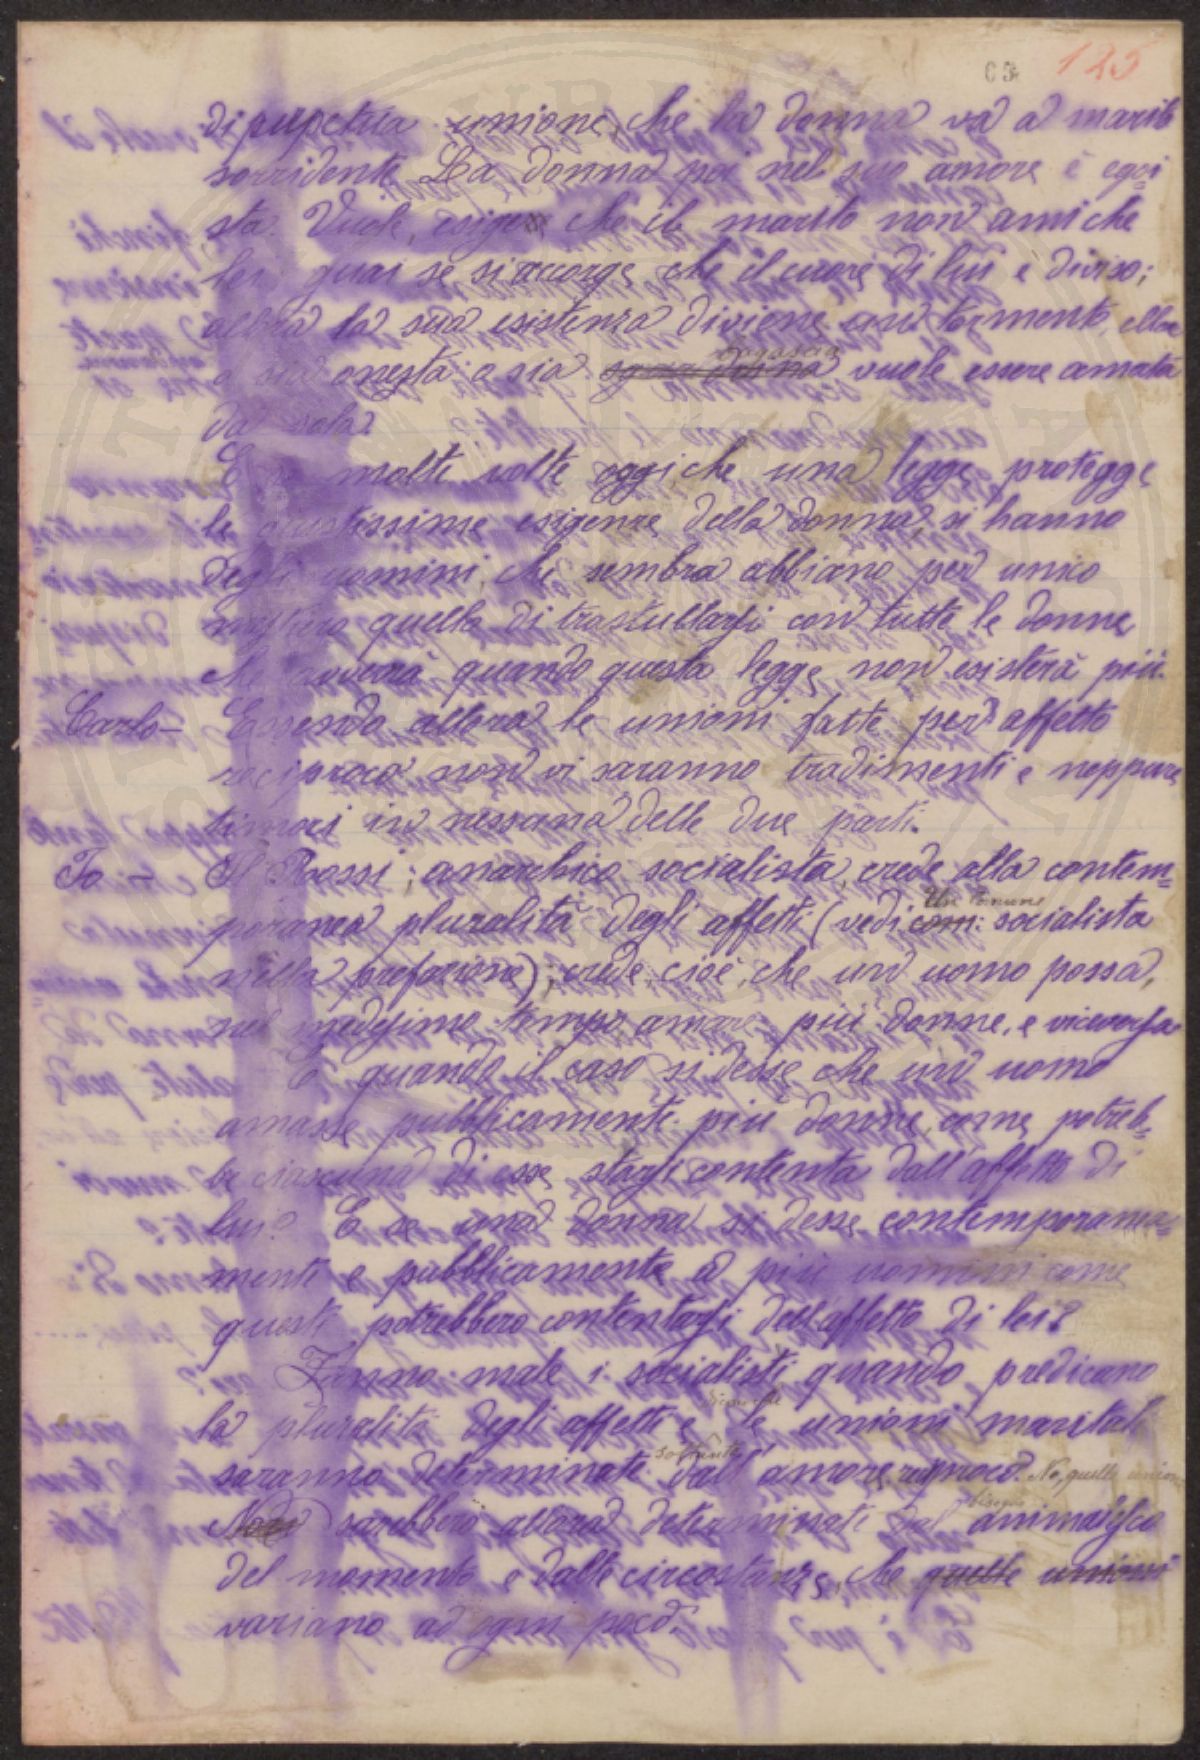 125
di perpetua unione, che la donna va a marito
sorridente. La donna poi nel suo amore è egoi
sta. Vuole, esige, che il marito non ami che
lei guai se si accorge che il cuore di lui è diviso;
allora la sua esistenza diviene un tormento, ella
o sia onesta o sia bagascia vuole essere amata
da sola.
E se molte volte oggi, che una legge protegge
le giustissime esigenze della donna, si hanno
degli uomini, che sembra abbiano per unico
mestiere quello di trastullarsi con tutte le donne
che avverrà quando questa legge non esisterà più.
Carlo - Essendo allora le unioni fatte per affetto
reciproco non vi saranno tradimenti e neppure
timori in nessuna delle due parti.
Io - Il Rossi, anarchico socialista, crede alla contem=
poranea pluralità degli affetti (vedi com: Un Comune socialista
nella prefazione); crede, cioè, che un uomo possa,
nel medesimo tempo, amare più donne, e viceversa
E quando il caso si desse che un uomo
amasse pubblicamente più donne, come potreb=
be ciascuna di esse starsi contenta dall'affetto di
lui? E se una donna si desse contemporanea=
mente e pubblicamente a più uomini come
questi potrebbero contentarsi dell'affetto di lei?
Fanno male i socialisti quando predicano
la pluralità degli affetti e le unioni maritali
saranno determinate soltanto dall'amore reciproco. No, quelle unioni
Non sarebbero allora determinate dal bisogno animalesco
del momento e dalle circostanze, che quelle unioni
variano ad ogni poco.